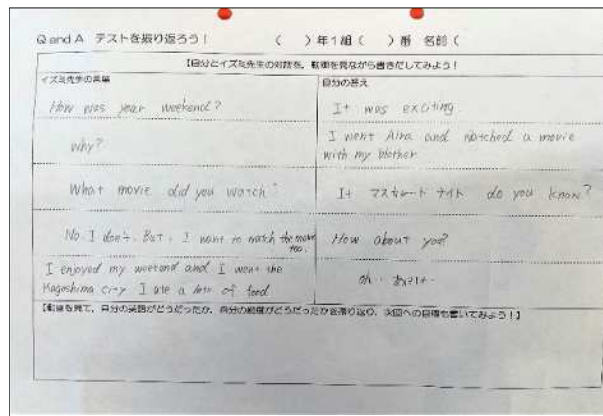 Q and A テストを振り返ろう! ( )年1組( )番 名前(
【自分とイズミ先生の対話を、動画を見ながら書きだしてみよう!
イズミ先生の言葉
自分の答え
How was your weekend?
It was exciting.
why?
I went Aira and watched a movie
with my
What movie did you watch?
It マスカレード ナイト do you know?
No. I don't. But, I want to watch the movie
too.
How about you?
I enjoyed my weekend and I went the
Kagoshima city I ate a lots of food
oh.
【動画を見て、自分の英語がどうだったか、自分の態度がどうだったかを振り返り、次回への目標も書いてみよう!】